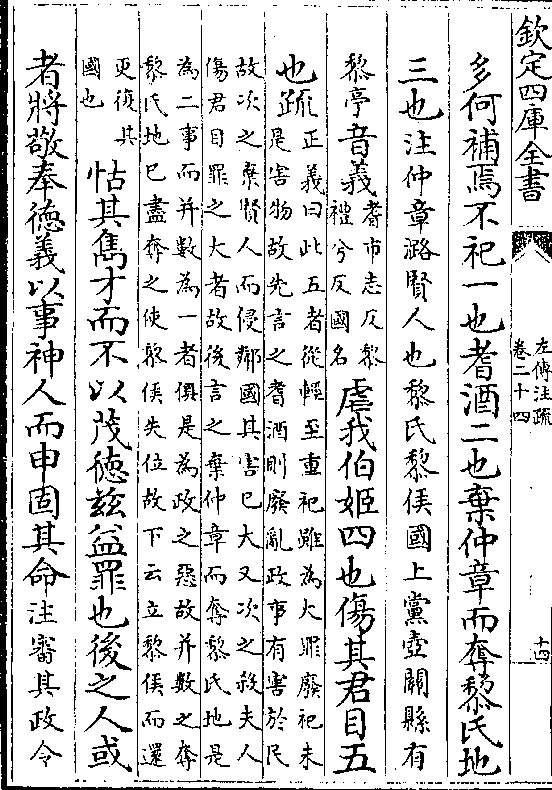 欽定四庫全書
左傳注疏
卷二十四
十四
多何補焉不祀一也耆酒二也棄仲章而奪黎氏地
三也注仲章潞賢人也黎氏黎侯國上黨壺關縣有
黎亭音義
耆市志反黎
禮兮反國名
虐我伯姬四也傷其君目五
也疏
正義曰此五者從輕至重祀雖為大罪廢祀未
是害物故先言之耆酒則廢亂政事有害於民
故次之棄賢人而侵鄰國其害已大又次之殺夫人
傷君目罪之大者故後言之棄仲章而奪黎氏地是
為二事而并數為一者俱是為政之惡故并數之奪
黎氏地已盡奪之使黎侯失位故下云立黎侯而還
更復其
國也
怙其雋才而不以茂德茲益罪也後之人或
者將敬奉德義以事神人而申固其命注審其政令